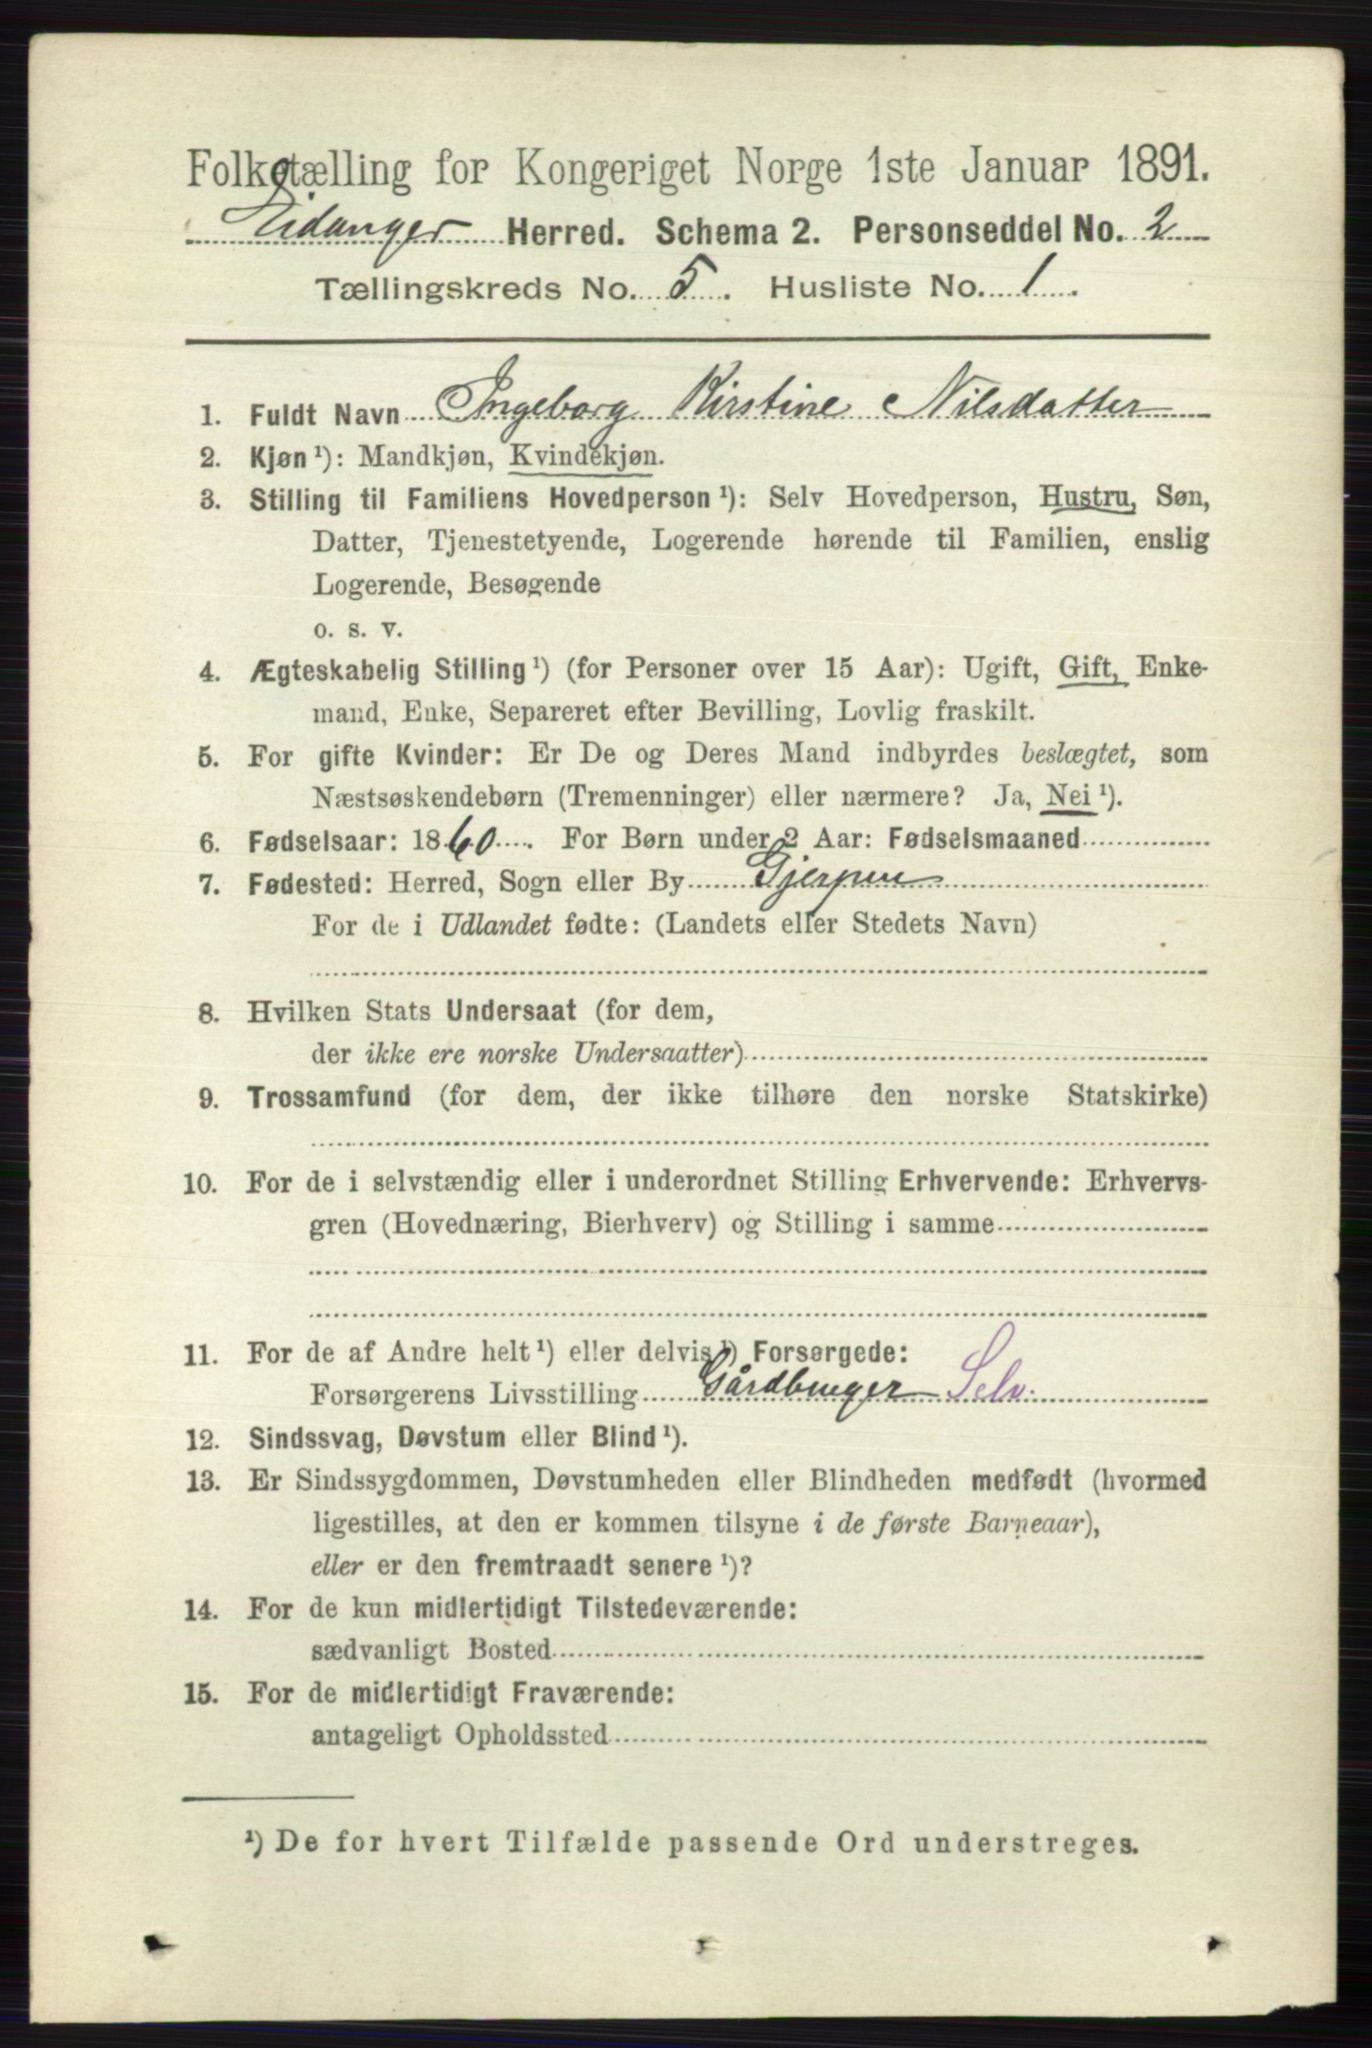 Folketælling for Kongeriget Norge 1ste Januar 1891.
Eidanger Herred. Schema 2. Personseddel No. 2
Tællingskreds No. 5. Husliste No. 1.
1. Fuldt Navn Ingeborg Kirstine Nilsdatter
2. Kjøn ¹): Mandkjøn, Kvindekjøn.
3. Stilling til Familiens Hovedperson ¹): Selv Hovedperson, Hustru, Søn,
Datter, Tjenestetyende, Logerende hørende til Familien, enslig
Logerende, Besøgende
o. s. v.
4. Ægteskabelig Stilling ¹) (for Personer over 15 Aar): Ugift, Gift, Enke-
mand, Enke, Separeret efter Bevilling, Lovlig fraskilt.
5. For gifte Kvinder: Er De og Deres Mand indbyrdes beslægtet, som
Næstsøskendebørn (Tremenninger) eller nærmere? Ja, Nei ¹).
6. Fødselsaar: 1860. For Børn under 2 Aar: Fødselsmaaned
7. Fødested: Herred, Sogn eller By Gjerpen
For de i Udlandet fødte: (Landets eller Stedets Navn)
8. Hvilken Stats Undersaat (for dem,
der ikke ere norske Undersaatter)
9. Trossamfund (for dem, der ikke tilhøre den norske Statskirke)
10. For de i selvstændig eller i underordnet Stilling Erhvervende: Erhvervs-
gren (Hovednæring, Bierhverv) og Stilling i samme
11. For de af Andre helt ¹) eller delvis ¹) Forsørgede:
Forsørgerens Livsstilling Gårdbruger Selv.
12. Sindssvag, Døvstum eller Blind ¹).
13. Er Sindssygdommen, Døvstumheden eller Blindheden medfødt (hvormed
ligestilles, at den er kommen tilsyne i de første Barneaar),
eller er den fremtraadt senere ¹)?
14. For de kun midlertidigt Tilstedeværende:
sædvanligt Bosted
15. For de midlertidigt Fraværende:
antageligt Opholdssted
¹) De for hvert Tilfælde passende Ord understreges.